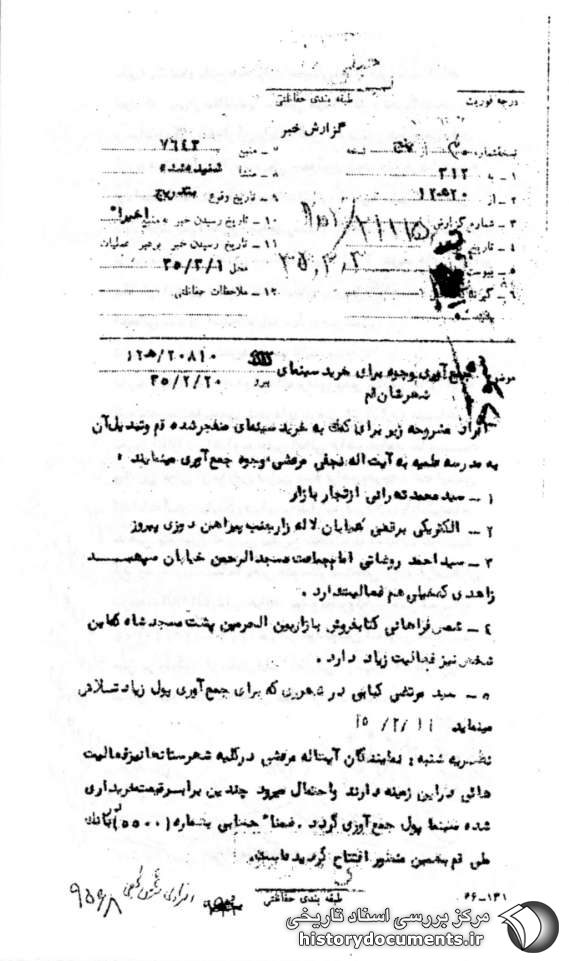 طبقه بندی حفاظتی
درجه فوریت
گزارش خبر
نسخه شماره از پنج نسخه
۵ - منبع ۷۶۴۳
۱ - به ۳۱۲
۸ - منشأ شنیده شده
۲ - از ۱۲ ۵۲۰
۹ - تاریخ وقوع بتدریج
۳ - شماره گزارش
۱۰ - تاریخ رسیدن خبر به منبع اخیرا"
۴ - تاریخ
۱۱ - تاریخ رسیدن خبر برهبر عملیات
۳۵٫۳٫۲
۵ - پیوست
محل ۳۵/۳/۱
۶ -
۱۲ - ملاحظات حفاظتی
موضوع جمع آوری وجوه برای خرید سینمای
۲۰۸۱۰/
شهرستان قم
پیرو ۳۵/۲/۲۰
افراد مشروحه زیر برای کمک به خرید سینمای منفجر شده قم و تبدیل آن
به مدرسه علمیه به آیت اله نجفی مرعشی وجوه جمع آوری مینمایند .
۱ - سید محمد تهرانی از تجار بازار
۲ - الکتریکی مرتضی خیابان لاله زار جنب پیراهن دوزی پیروز
۳ - سید احمد روغنانی امام جماعت مسجد الرحمن خیابان سپهبد
زاهدی که خیلی هم فعالیت دارد .
۴ - شمس فراهانی کتابفروش بازار بین الحرمین پشت مسجد شاه که این
شخص نیز فعالیت زیاد دارد .
۵ - سید مرتضی کبابی در شهرری که برای جمع آوری پول زیاد تلاش
مینماید
نظریه شنبه : نمایندگان آیت اله مرعشی در کلیه شهرستانها نیز فعالیت
هائی در این زمینه دارند و احتمال میرود چندین برابر قیمت خریداری
شده سینما پول جمع آوری گردد . ضمنا" حسابی بشماره (۵۵۰۰) بانک
ملی قم بهمین منظور افتتاح گردیده است .
طبقه بندی حفاظتی
۶۶-۱۳۱
۹۵۶۸
مرکز بررسی اسناد تاریخی
historydocuments.ir